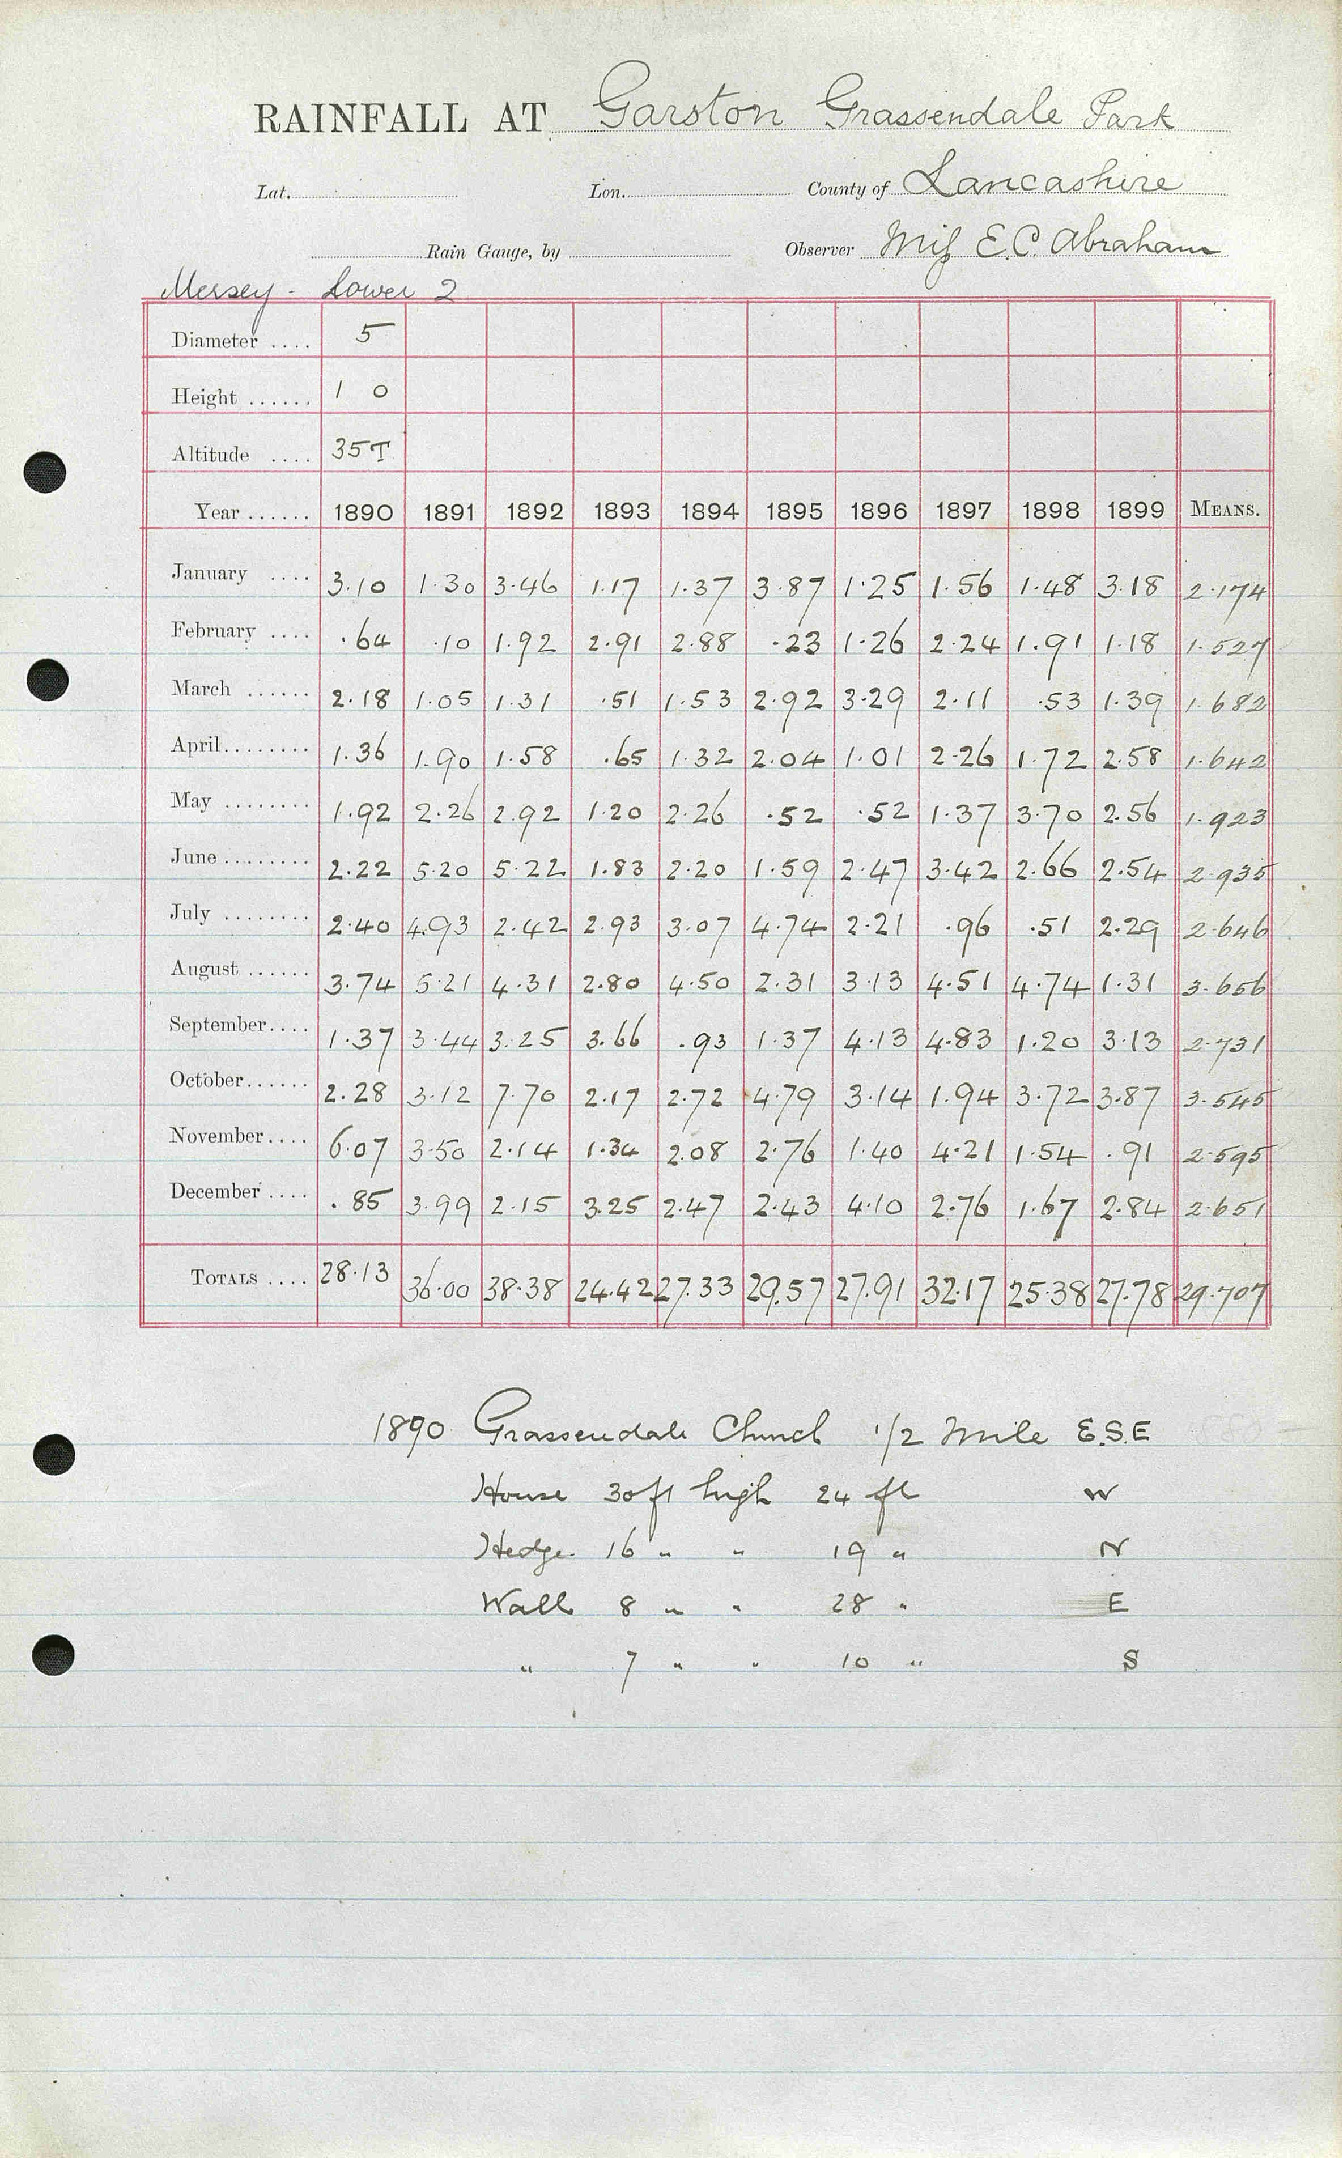 RAINFALL AT Garston Grassendale Park
Lat. Lon. County of Lancashire
Rain Gauge, by Observer Miss E.C. Abraham
Mersey - Lower 2
Diameter .... 5
Height ...... 1 0
Altitude .... 35T
Year ...... 1890 1891 1892 1893 1894 1895 1896 1897 1898 1899 MEANS.
January .... 3.10 1.30 3.46 1.17 1.37 3.87 1.25 1.56 1.48 3.18 2.174
February .... .64 .10 1.92 2.91 2.88 .23 1.26 2.24 1.91 1.18 1.527
March ...... 2.18 1.05 1.31 .51 1.53 2.92 3.29 2.11 .53 1.39 1.682
April........ 1.36 1.90 1.58 .65 1.32 2.04 1.01 2.26 1.72 2.58 1.642
May ........ 1.92 2.26 2.92 1.20 2.26 .52 .52 1.37 3.70 2.56 1.923
June ........ 2.22 5.20 5.22 1.83 2.20 1.59 2.47 3.42 2.66 2.54 2.935
July ........ 2.40 4.93 2.42 2.93 3.07 4.74 2.21 .96 .51 2.29 2.646
August ...... 3.74 5.21 4.31 2.80 4.50 2.31 3.13 4.51 4.74 1.31 3.656
September.... 1.37 3.44 3.25 3.66 .93 1.37 4.13 4.83 1.20 3.13 2.731
October...... 2.28 3.12 7.70 2.17 2.72 4.79 3.14 1.94 3.72 3.87 3.545
November.... 6.07 3.50 2.14 1.34 2.08 2.76 1.40 4.21 1.54 .91 2.595
December .... .85 3.99 2.15 3.25 2.47 2.43 4.10 2.76 1.67 2.84 2.651
TOTALS .... 28.13 36.00 38.38 24.42 27.33 29.57 27.91 32.17 25.38 27.78 29.707
1890 Grassendale Church 1/2 Mile E.S.E
House 30ft high 24 ft W
Hedge 16 " " 19 " N
Wall 8 " " 28 " E
" 7 " " 10 " S